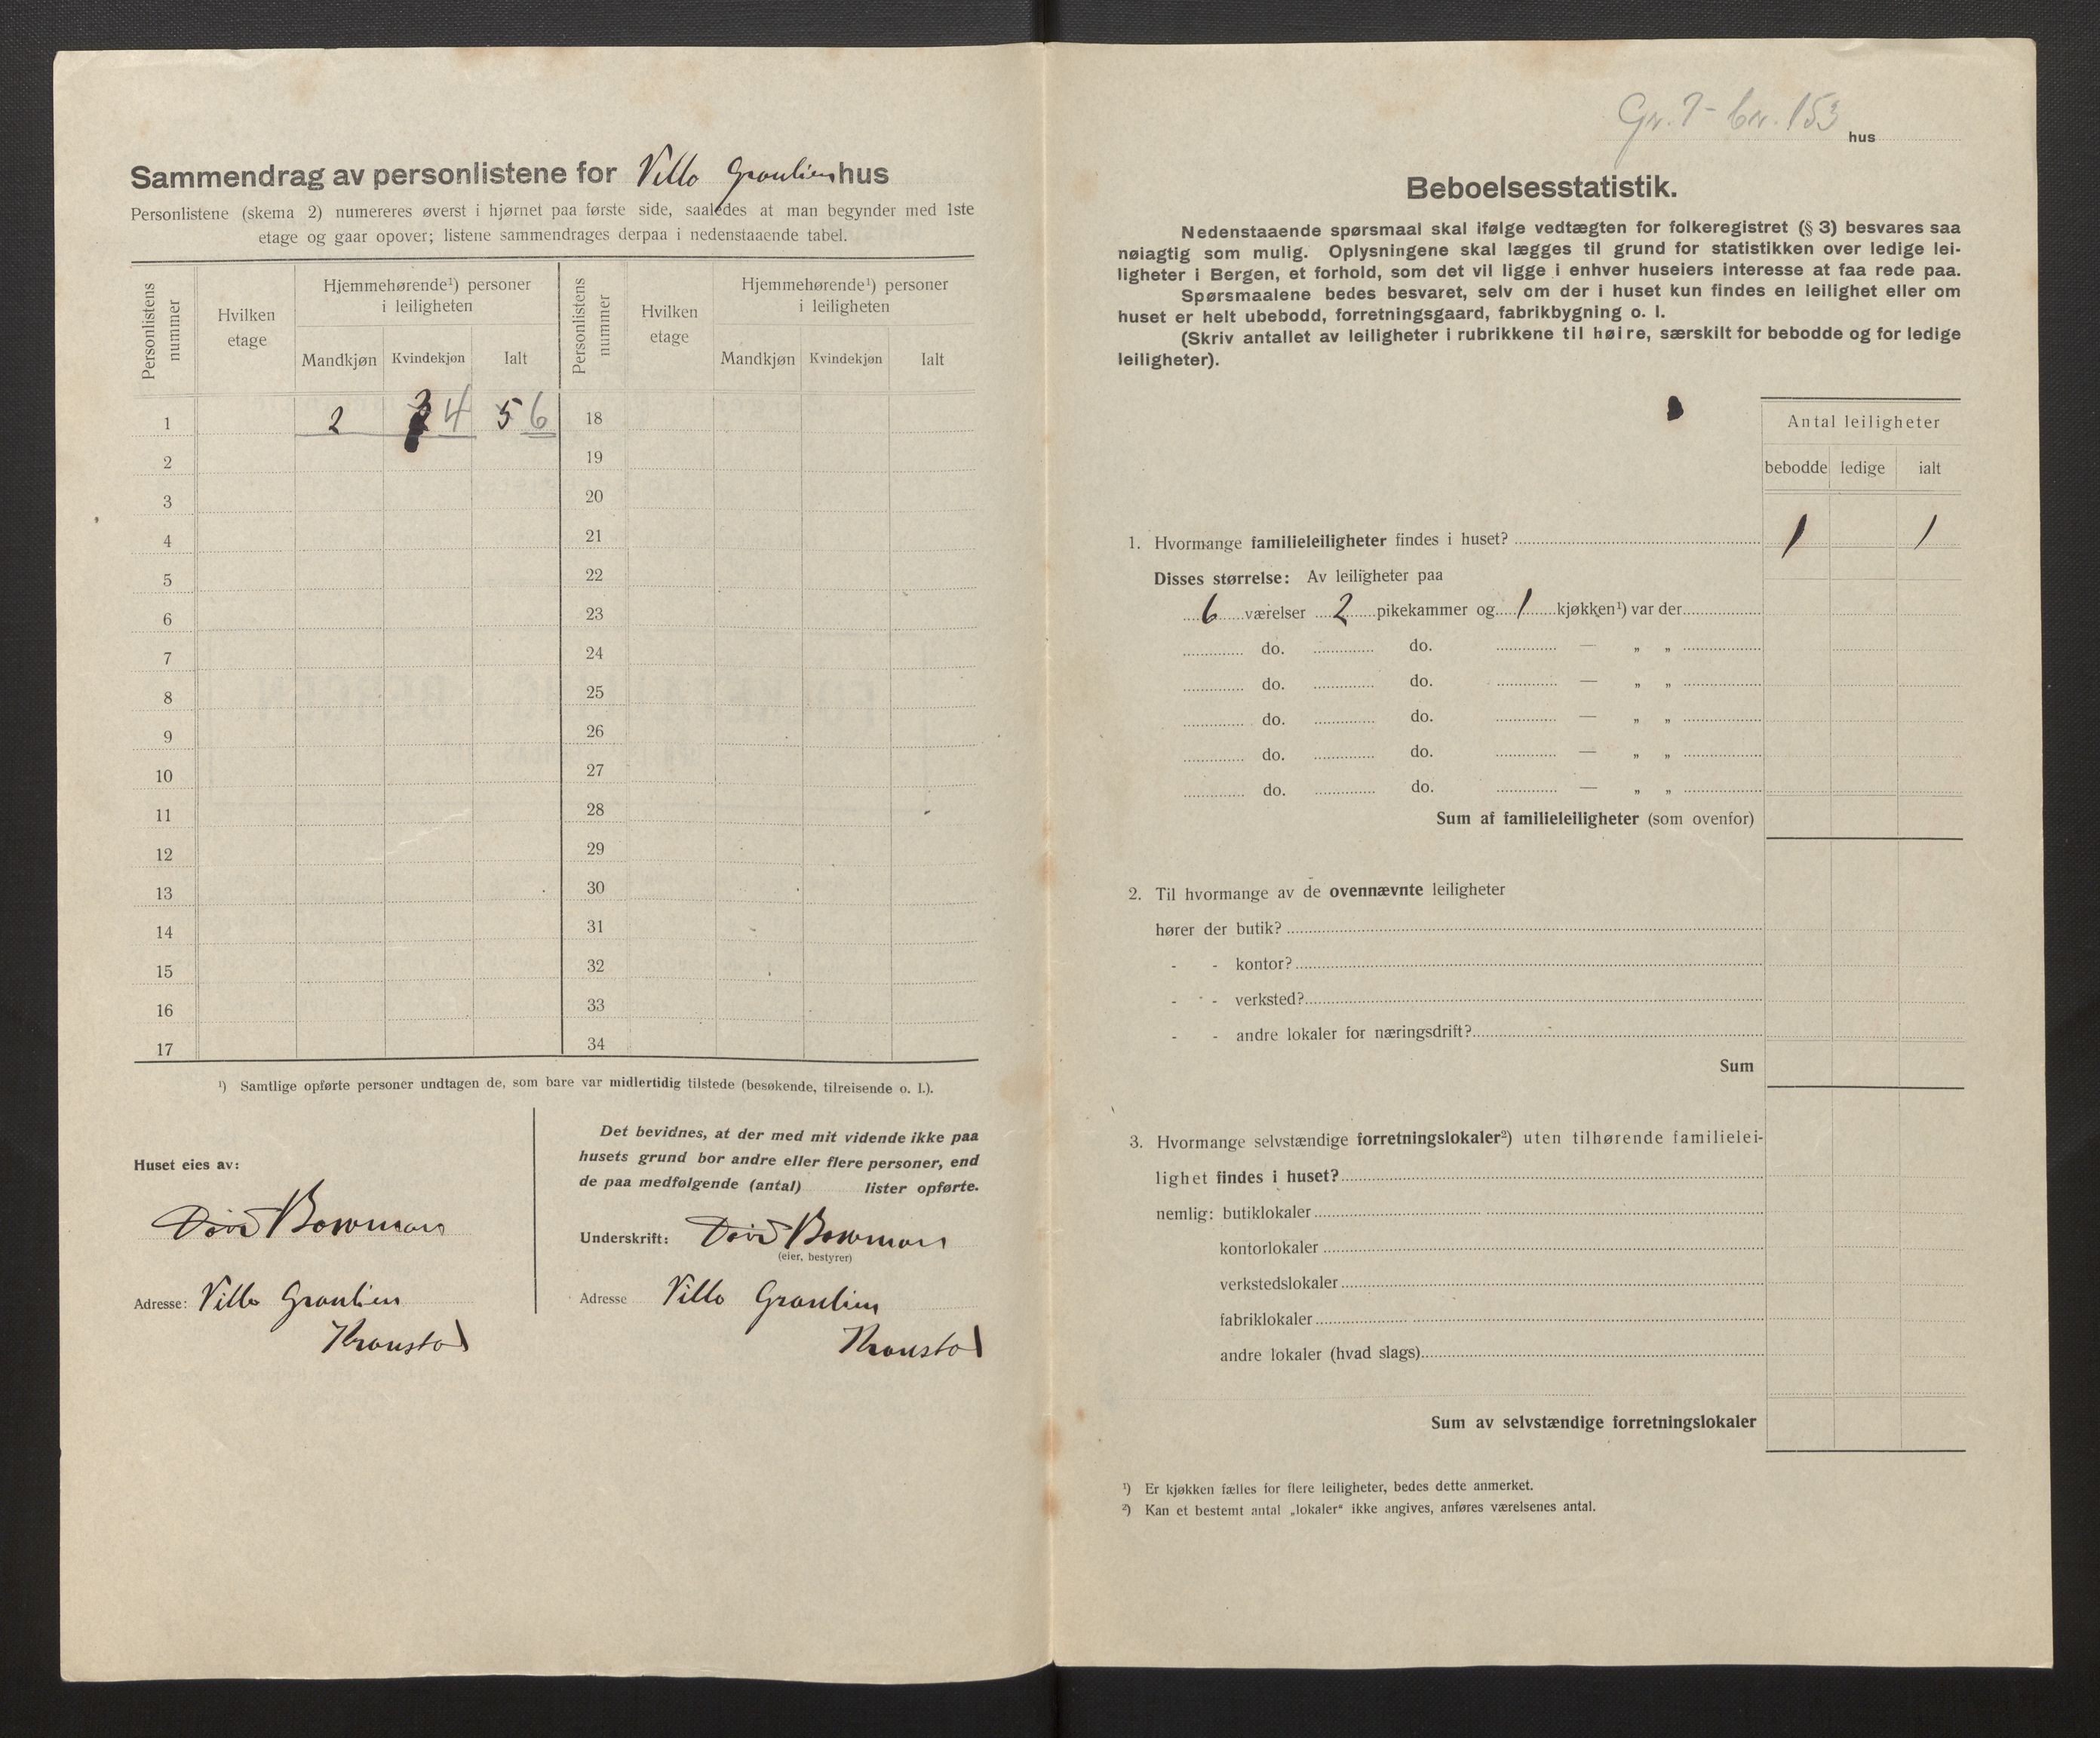 Sammendrag av personlistene for Villa Graulien hus
Personlistene (skema 2) numereres øverst i hjørnet paa første side, saaledes at man begynder med 1ste
etage og gaar opover; listene sammendrages derpaa i nedenstaaende tabel.
Personlistens nummer
Hvilken etage
Hjemmehørende¹) personer i leiligheten
Mandkjøn Kvindekjøn Ialt
Personlistens nummer
Hvilken etage
Hjemmehørende¹) personer i leiligheten
Mandkjøn Kvindekjøn Ialt
1 2 4 5 6 18
2 19
3 20
4 21
5 22
6 23
7 24
8 25
9 26
10 27
11 28
12 29
13 30
14 31
15 32
16 33
17 34
¹) Samtlige opførte personer undtagen de, som bare var midlertidig tilstede (besøkende, tilreisende o. l.).
Huset eies av:
Bowman
Adresse: Villa Graulien
Kronstad
Det bevidnes, at der med mit vidende ikke paa
husets grund bor andre eller flere personer, end
de paa medfølgende (antal) lister opførte.
Underskrift: Bowman
(eier, bestyrer)
Adresse Villa Graulien
Kronstad
Gr. 7 - br. 153 hus
Beboelsesstatistik.
Nedenstaaende spørsmaal skal ifølge vedtægten for folkeregistret (§ 3) besvares saa
nøiagtig som mulig. Oplysningene skal lægges til grund for statistikken over ledige lei-
ligheter i Bergen, et forhold, som det vil ligge i enhver huseiers interesse at faa rede paa.
Spørsmaalene bedes besvaret, selv om der i huset kun findes en leilighet eller om
huset er helt ubebodd, forretningsgaard, fabrikbygning o. l.
(Skriv antallet av leiligheter i rubrikkene til høire, særskilt for bebodde og for ledige
leiligheter).
Antal leiligheter
bebodde ledige ialt
1. Hvormange familieleiligheter findes i huset? 1 1
Disses størrelse: Av leiligheter paa
6 værelser 2 pikekammer og 1 kjøkken¹) var der
do. do. — „ „
do. do. — „ „
do. do. — „ „
do. do. — „ „
do. do. — „ „
Sum af familieleiligheter (som ovenfor)
2. Til hvormange av de ovennævnte leiligheter
hører der butik?
- - kontor?
- - verksted?
- - andre lokaler for næringsdrift?
Sum
3. Hvormange selvstændige forretningslokaler²) uten tilhørende familielei-
lighet findes i huset?
nemlig: butiklokaler
kontorlokaler
verkstedslokaler
fabriklokaler
andre lokaler (hvad slags)
Sum av selvstændige forretningslokaler
¹) Er kjøkken fælles for flere leiligheter, bedes dette anmerket.
²) Kan et bestemt antal „lokaler“ ikke angives, anføres værelsenes antal.